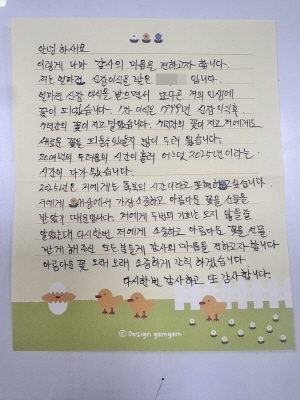 안녕하세요
이렇게 나마 감사의 마음을 전하고자 합니다.
저는 얼마전 신장이식을 받은 입니다.
얼마전 신장 이식을 받으면서 또다른 저의 인생에
꽃이 피었습니다. 1차 이식은 1999년 신장 이식후
꽃이 지고 말았습니다. 꽃이 지고 저에게도
새로운 꽃을 피울수 있을지 많이 두려 웠습니다.
20여년의 두려움의 시간이 흘러 어느덧 2025년이라는
시간이 다가 왔습니다.
2025년은 저에게는 축복의 시간이라고 표현하고 싶습니다.
저에게 세상에서 가장 소중하고 아름다운 꽃을 선물
받았기 때문입니다. 저에게 두번의 기회는 오지 않을줄
알았는데 다시한번 저에게 소중하고 아름다운 꽃을 선물
받게 해주신 모든분들께 감사의 마음을 전하고자 합니다
아름다운 꽃 오래 오래 소중하게 간직 하겠습니다.
다시한번 감사하고 또 감사합니다.
ⓒ Design gomgom